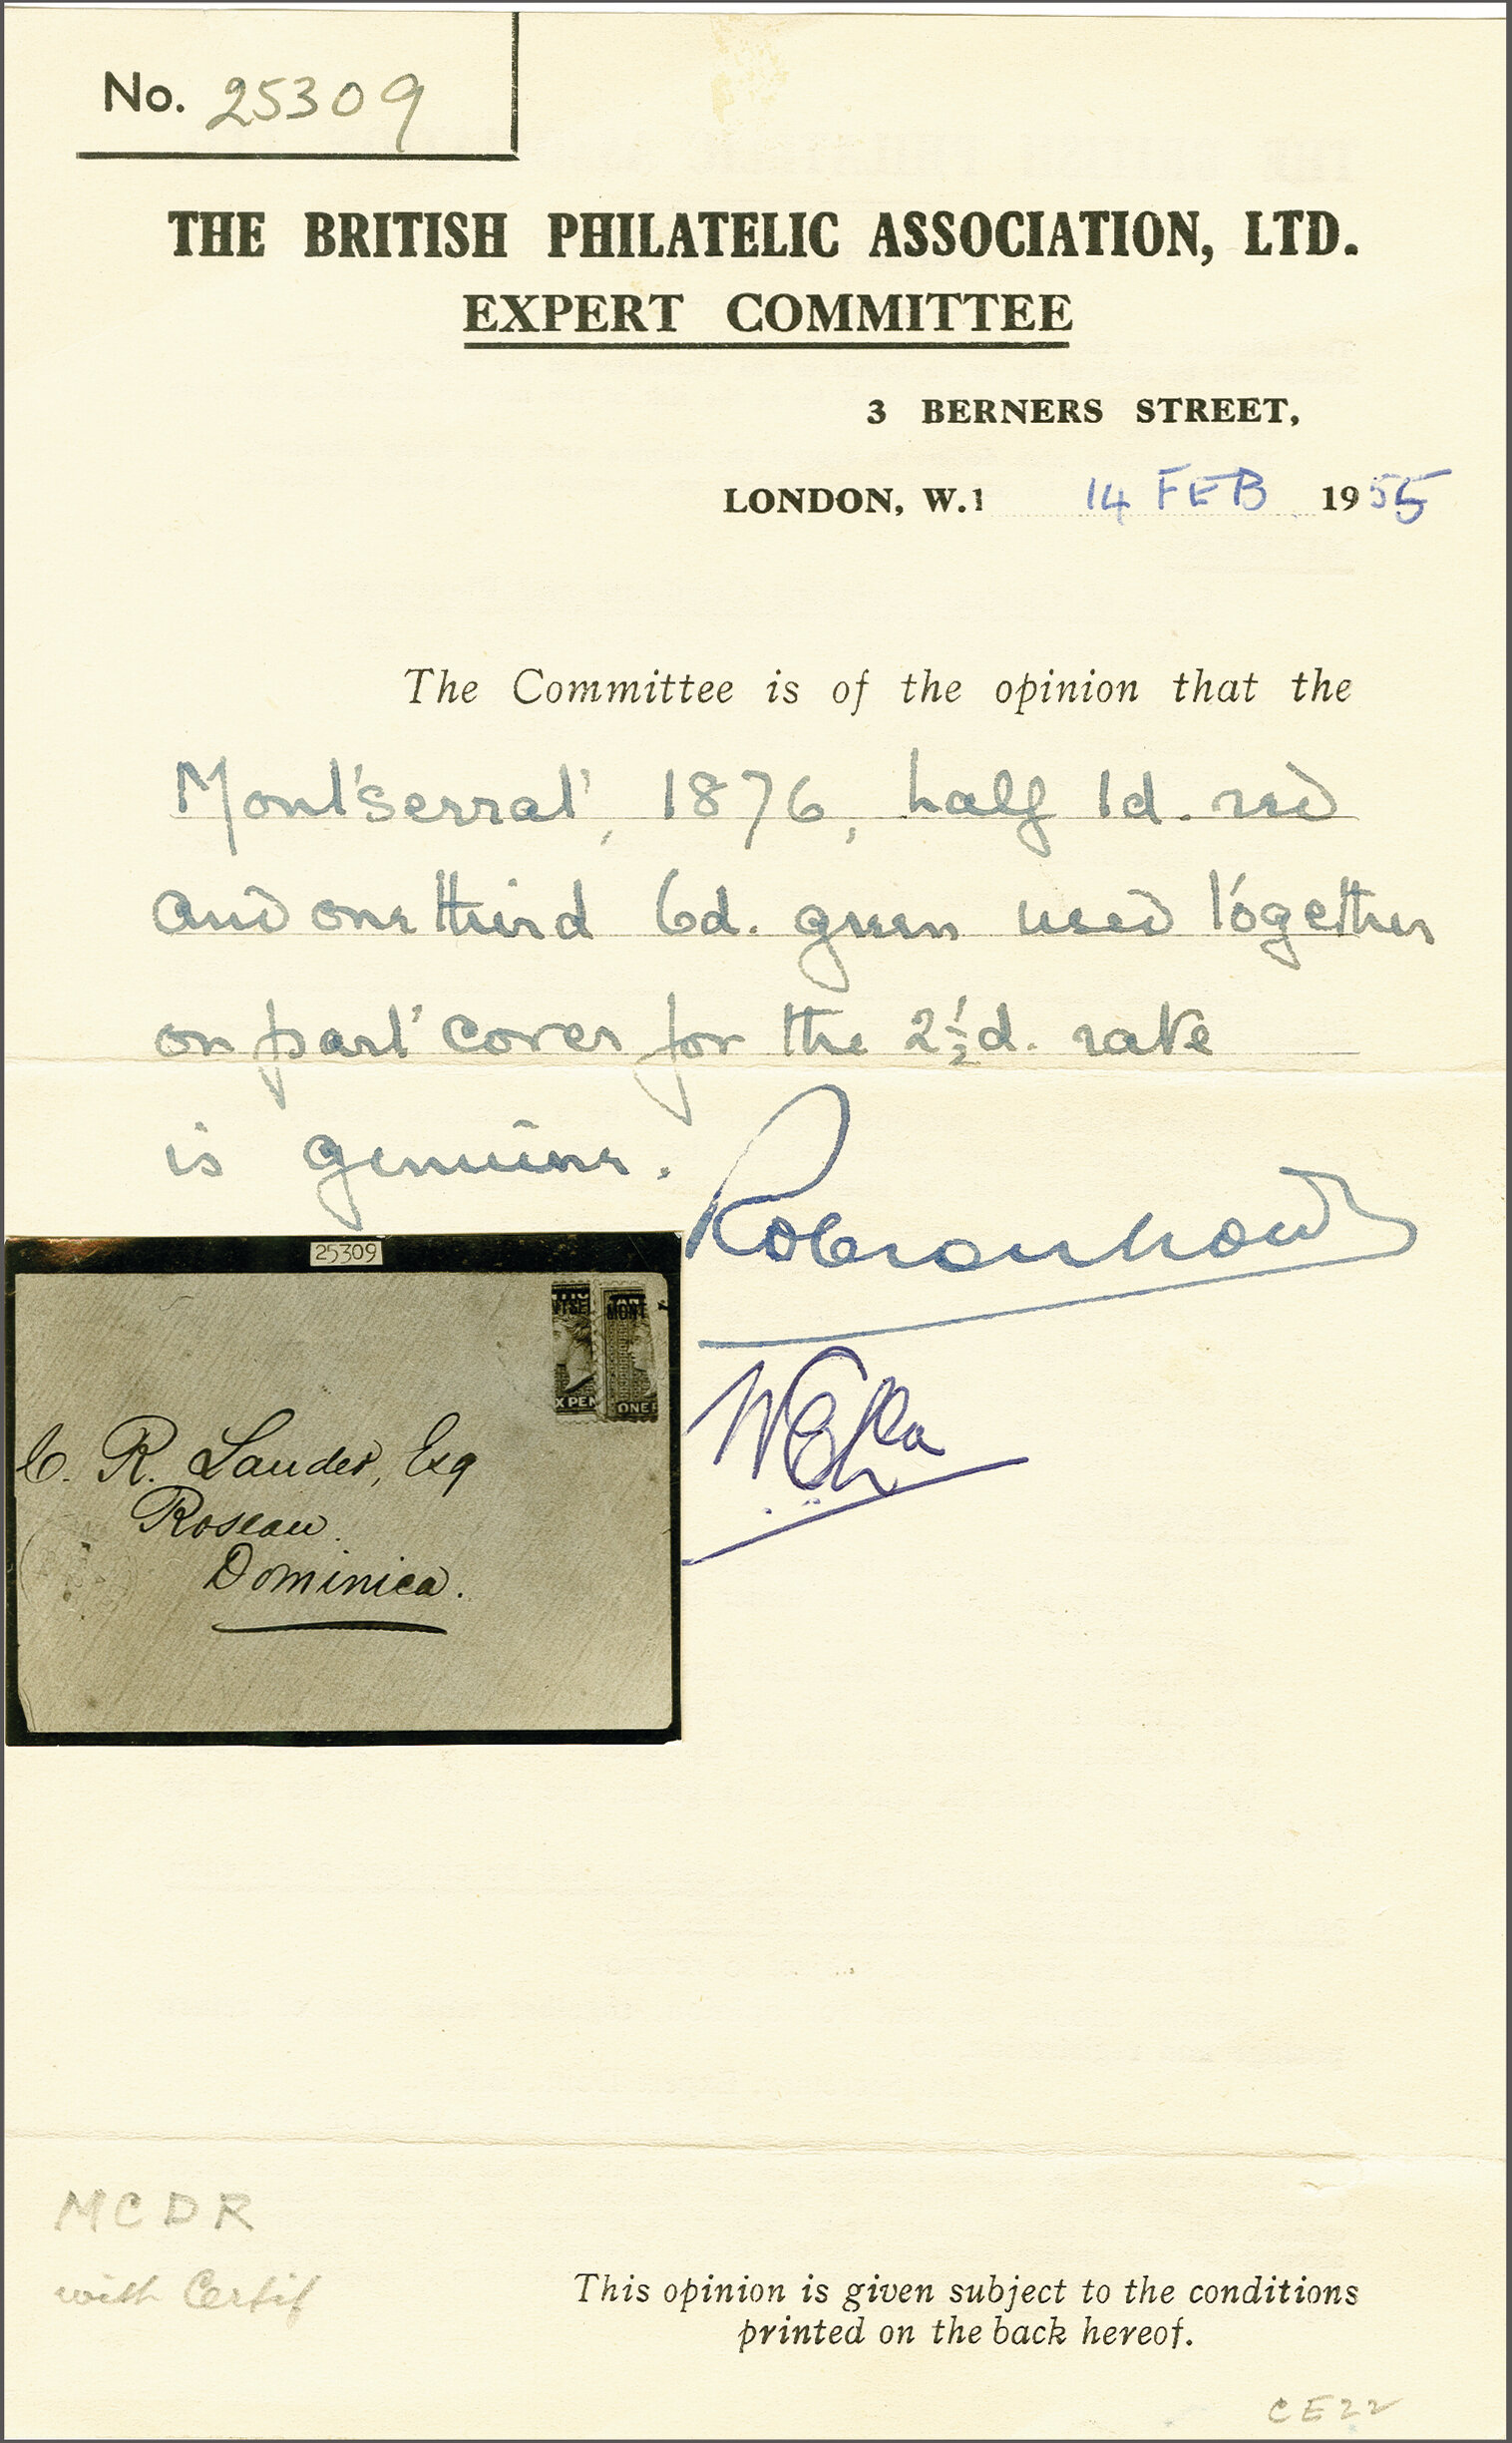 No. 25309
THE BRITISH PHILATELIC ASSOCIATION, LTD.
EXPERT COMMITTEE
3 BERNERS STREET,
LONDON, W.1 14 FEB 1955
The Committee is of the opinion that the
Montserrat, 1876, half 1d. red
and one third 6d. green used together
on part cover for the 2½d. rate
is genuine.
25309
NTSE
MONT
X PEN
ONE P
C. R. Lander, Esq
Roseau
Dominica.
MCDR
with Certif
This opinion is given subject to the conditions
printed on the back hereof.
CE22